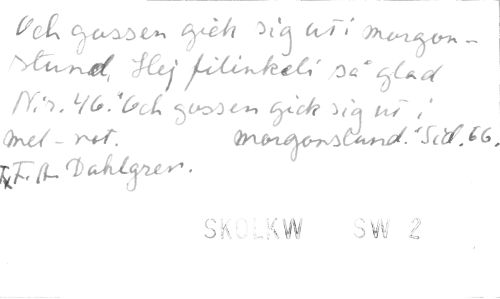 Och gossen gick sig ut i morgon-
stund, Hej filinkeli så glad
N:r. 46. "Och gossen gick sig ut i
mel-not. morgonstund." Sid. 66.
Tx F. A. Dahlgren.
SKOLKW SW 2